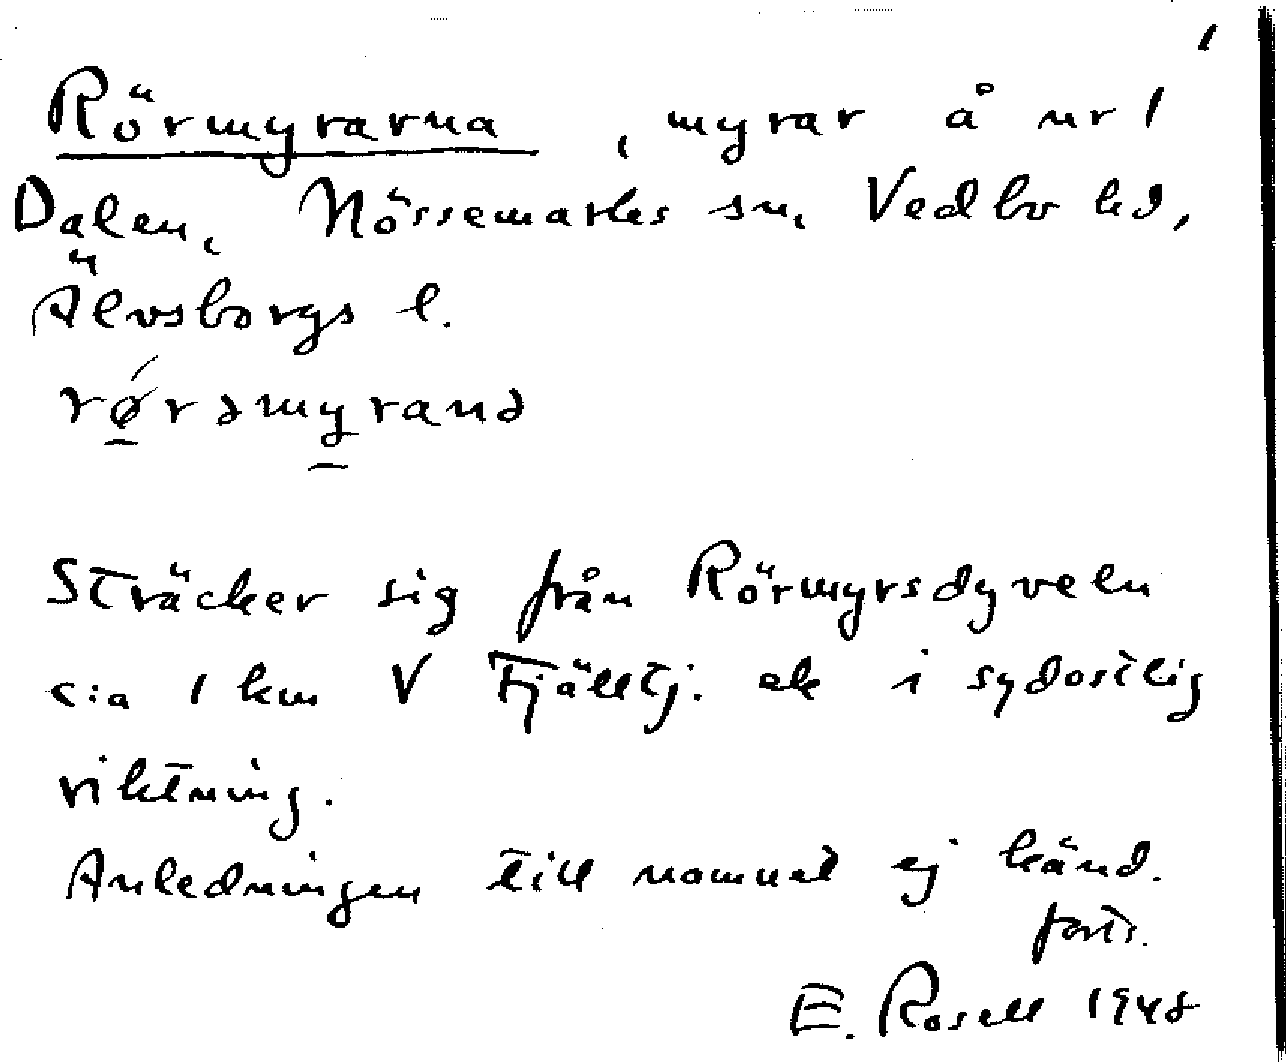 1
Rörmyrarna , myrar å nr 1
Dalen, Nössemarks sn, Vedbo hd,
Älvsborgs l.
rǿrəmyranə
Sträcker sig från Rörmyrsdyveln
c:a 1 km V Fjälltj. ak i sydostlig
riktning.
Anledningen till namnet ej känd.
forts.
E. Rosell 1948